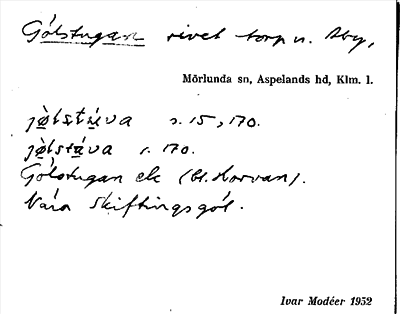 Gölstugan rivet torp u. Åby,
Mörlunda sn, Aspelands hd, Klm. l.
jö̀lstúva s. 15, 170.
jö̀lstáva s. 170.
Gölstugan ek (bl.
Nära skiftingsgöl.
Ivar Modéer 1952